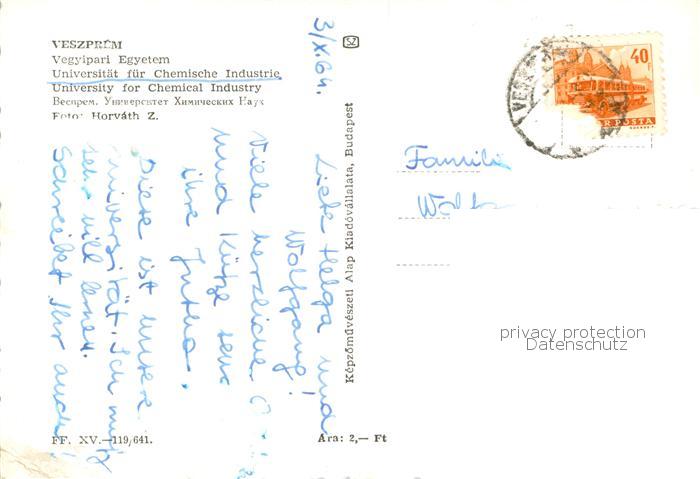 VESZPRÉM
Vegyipari Egyetem
Universität für Chemische Industrie
University for Chemical Industry
Веспрем. Университет Химических Наук
Foto: Horváth Z.
3/X.64.
Liebe Helga und
Wolfgang!
Viele herzliche
und Küße
ihre Jutka.
Diese ist unsere
Universität. Ich muß
sehr viel lernen.
Schreibet Ihr auch!
SZ
Képzőművészeti Alap Kiadóvállalata, Budapest
FF. XV.—119/641.
Ára: 2,— Ft
40 f
R POSTA
VESZ
Famili
privacy protection
Datenschutz